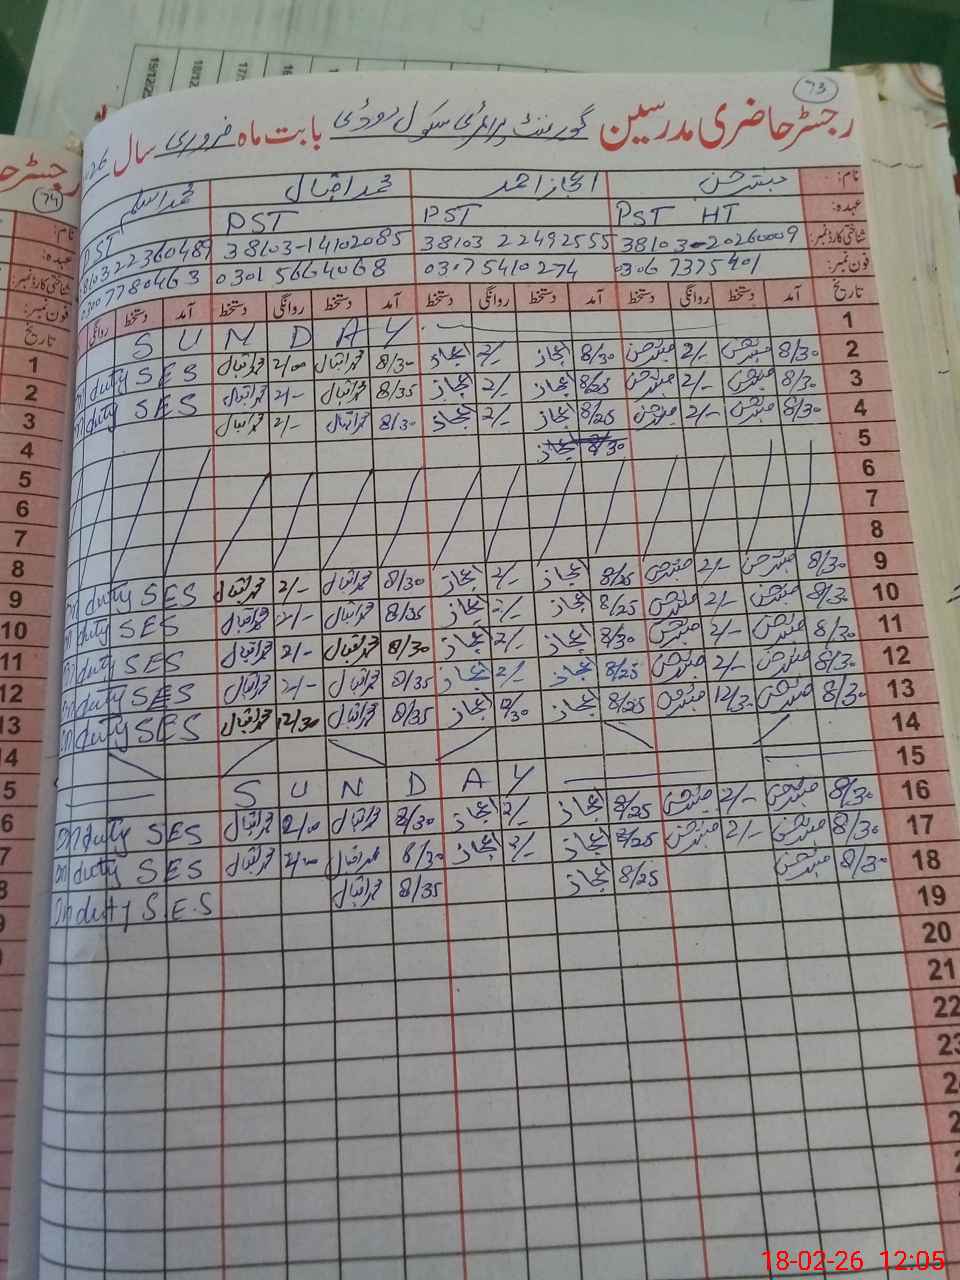 73
رجسٹر حاضری مدرسین گورنمنٹ پرائمری سکول بابت ماہ فروری سال
نام: مبشر حسن اعجاز احمد محمد اقبال محمد اسلم
عہدہ: PST HT PST PST PST
شناختی کارڈ نمبر: 38103-20260009 38103 22492555 38103-14102085 3810322360489
فون نمبر: 0306 7375401 03075410274 0301 5664068 03007780463
تاریخ آمد دستخط روانگی دستخط آمد دستخط روانگی دستخط آمد دستخط روانگی دستخط آمد دستخط روانگی
1 S U N D A Y
2 8/30 مبشر حسن 2/- مبشر حسن 8/30 اعجاز 2/- اعجاز 8/30 محمد اقبال 2/00 محمد اقبال on duty SES
3 8/30 مبشر حسن 2/- مبشر حسن 8/25 اعجاز 2/- اعجاز 8/35 محمد اقبال 2/- محمد اقبال on duty SES
4 8/30 مبشر حسن 2/- مبشر حسن 8/25 اعجاز 2/- اعجاز 8/30 محمد اقبال 2/- محمد اقبال
5 8/30 اعجاز
6
7
8
9 8/30 مبشر حسن 2/- مبشر حسن 8/25 اعجاز 2/- اعجاز 8/30 محمد اقبال 2/- محمد اقبال on duty SES
10 8/30 مبشر حسن 2/- مبشر حسن 8/25 اعجاز 2/- اعجاز 8/35 محمد اقبال 2/- محمد اقبال on duty SES
11 8/30 مبشر حسن 2/- مبشر حسن 8/30 اعجاز 2/- اعجاز 8/30 محمد اقبال 2/- محمد اقبال on duty SES
12 8/30 مبشر حسن 2/- مبشر حسن 8/25 اعجاز 2/- اعجاز 8/35 محمد اقبال 2/- محمد اقبال on duty SES
13 8/30 مبشر حسن 12/30 مبشر حسن 8/25 اعجاز 12/30 اعجاز 8/35 محمد اقبال 12/30 محمد اقبال on duty SES
14
15 S U N D A Y
16 8/30 مبشر حسن 2/- مبشر حسن 8/25 اعجاز 2/- اعجاز 8/30 محمد اقبال 2/00 محمد اقبال on duty SES
17 8/30 مبشر حسن 2/- مبشر حسن 8/25 اعجاز 2/- اعجاز 8/30 محمد اقبال 2/00 محمد اقبال on duty SES
18 8/30 مبشر حسن 8/25 اعجاز 8/35 محمد اقبال on duty S.E.S
19
20
21
22
23
18-02-26 12:05